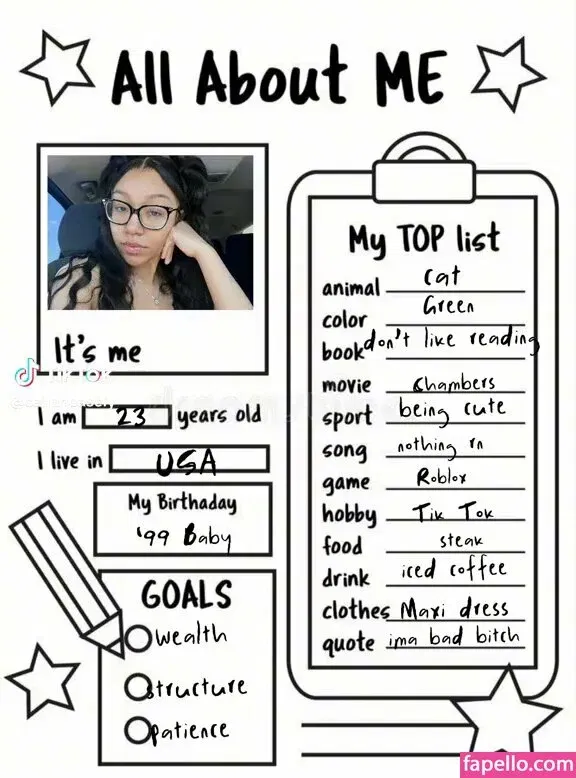 All About ME
It's me
TikTok
I am 23 years old
I live in USA
My Birthaday
'99 Baby
GOALS
wealth
structure
patience
My TOP list
animal cat
color Green
book don't like reading
movie Chambers
sport being cute
song nothing rn
game Roblox
hobby Tik Tok
food steak
drink iced coffee
clothes Maxi dress
quote ima bad bitch
fapello.com